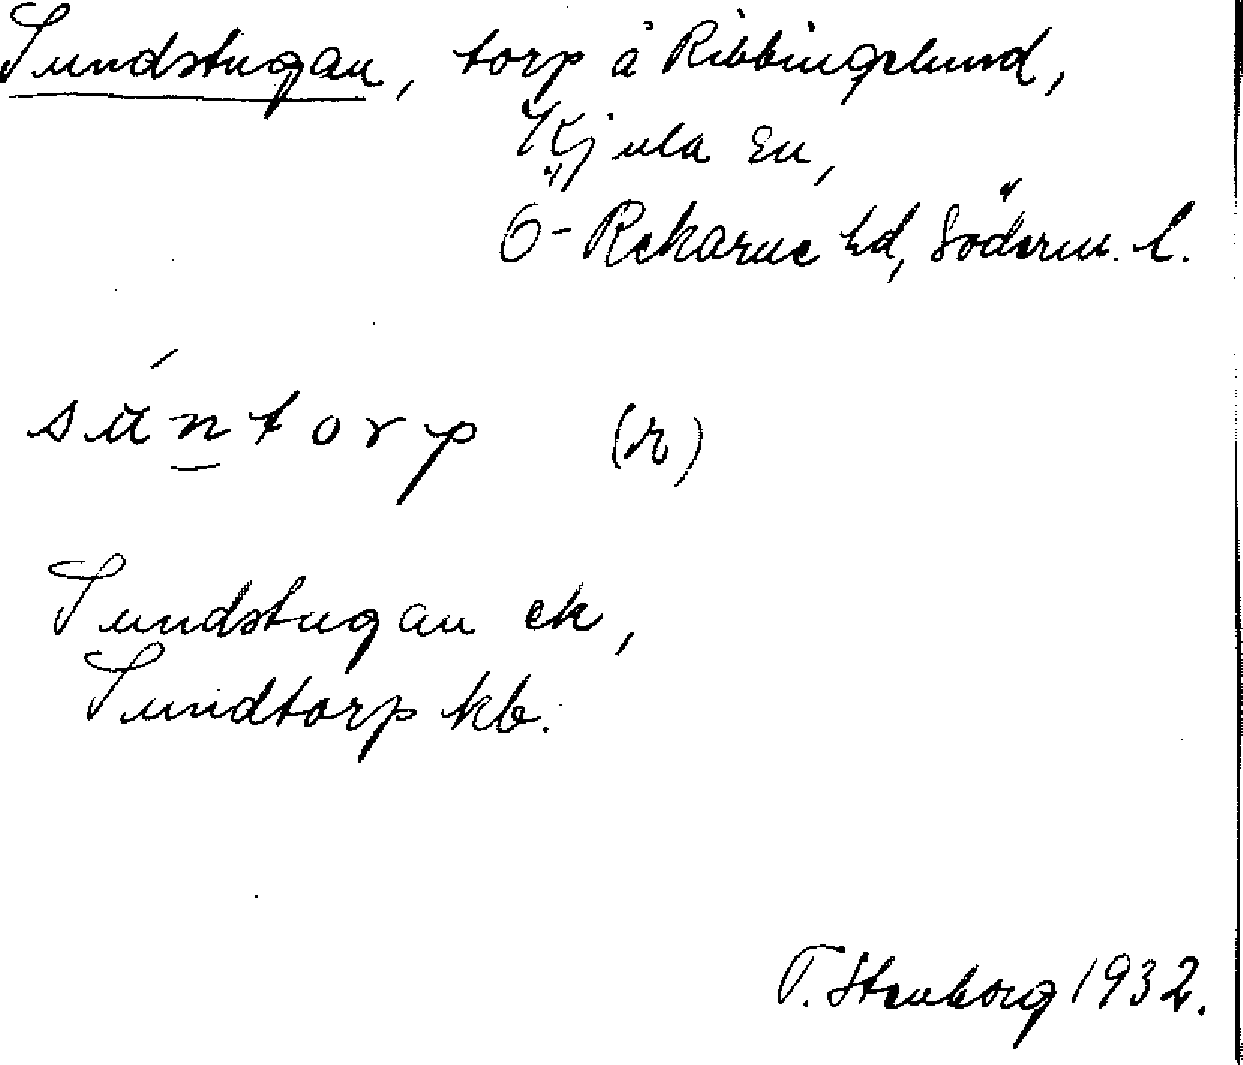 Sundstugan, torp å Ribbingelund,
Kjula sn,
Ö-Rekarne hd, Söderm. l.
súntorp (r)
Sundstugan ek,
Sundtorp kb.
T. Stenborg 1932.